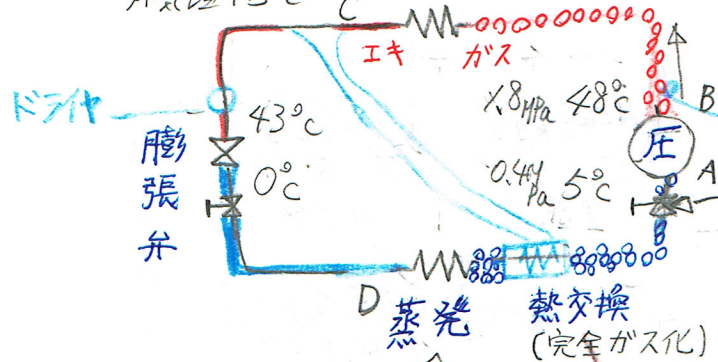 C
エキ ガス
ドライヤ
43°C
1.8MPa 48°C
B
圧
膨張弁
0°C
0.4MPa 5°C
A
D
蒸発
熱交換
(完全ガス化)